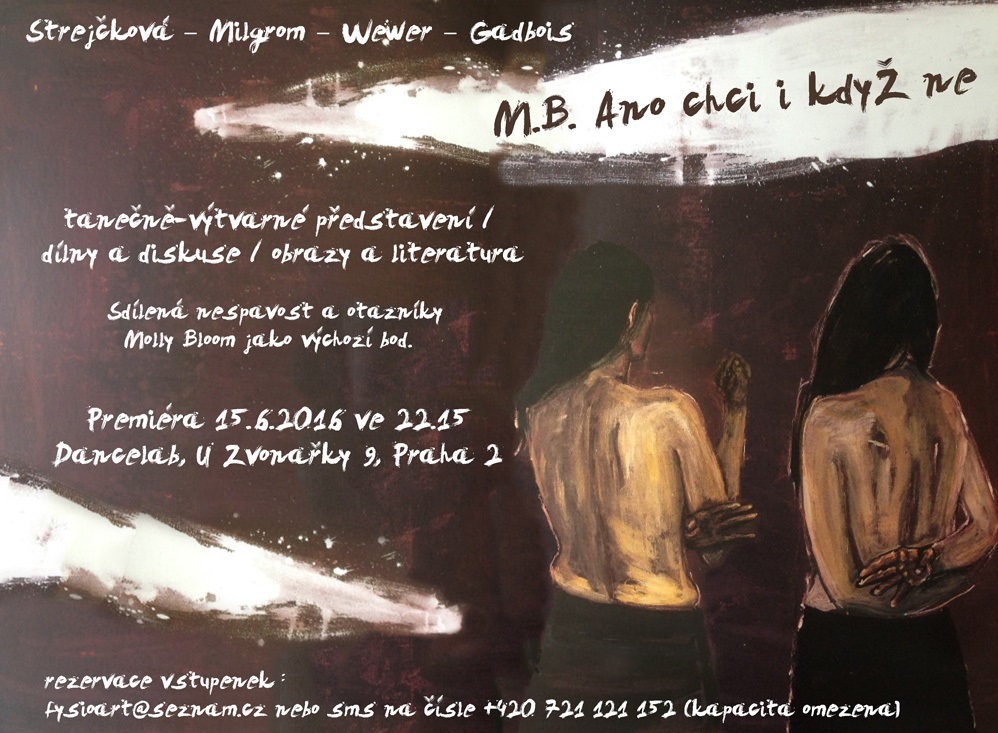 Strejčková – Milgrom – Wewer – Gadbois
M.B. Ano chci i když ne
tanečně-výtvarné představení /
dílny a diskuse / obrazy a literatura
Sdílená nespavost a otazníky
Molly Bloom jako výchozí bod.
Premiéra 15.6.2016 ve 22.15
Dancelab, U Zvonařky 9, Praha 2
rezervace vstupenek:
fysioart@seznam.cz nebo sms na čísle +420 721 121 152 (kapacita omezena)